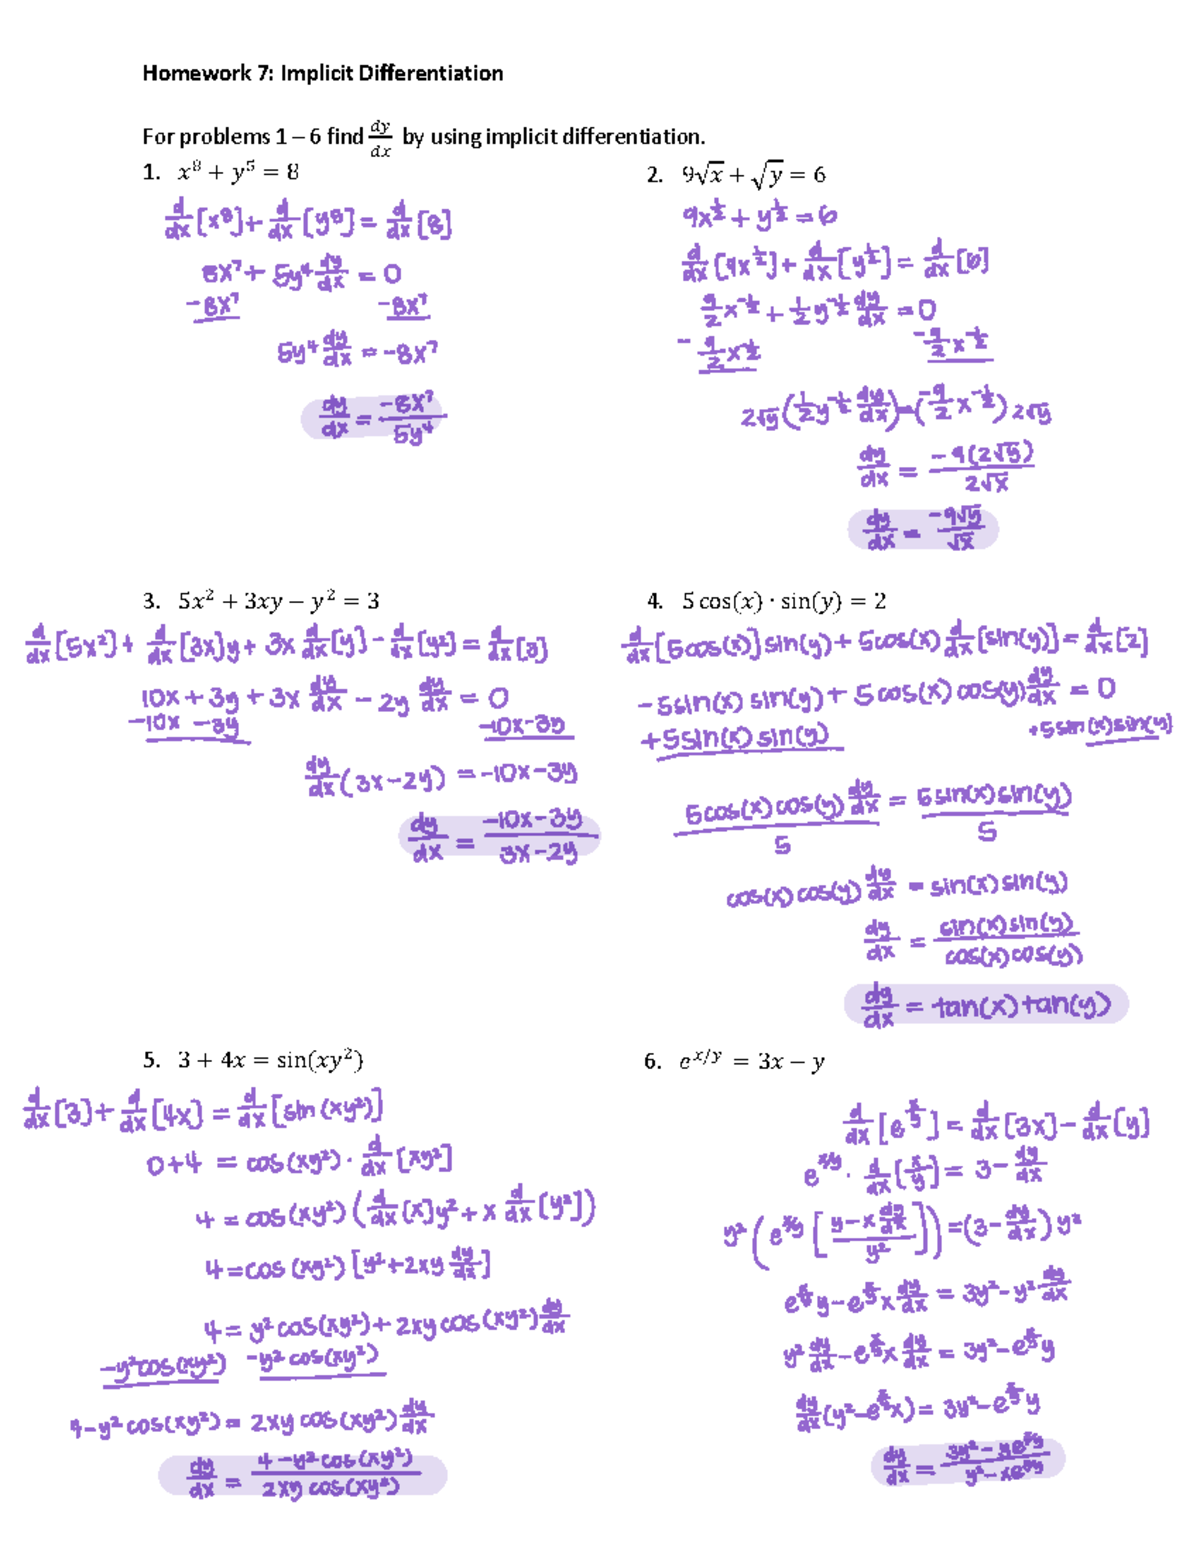 Homework 7: Implicit Differentiation
For problems 1 – 6 find dy/dx by using implicit differentiation.
1. x⁸ + y⁵ = 8
d/dx[x⁸] + d/dx[y⁸] = d/dx[8]
8x⁷ + 5y⁴ dy/dx = 0
-8x⁷ -8x⁷
5y⁴ dy/dx = -8x⁷
dy/dx = -8x⁷/5y⁴
2. 9√x + √y = 6
9x^½ + y^½ = 6
d/dx[9x^½] + d/dx[y^½] = d/dx[6]
9/2 x^-½ + ½y^-½ dy/dx = 0
- 9/2 x^-½ -9/2 x^-½
2√y(½y^-½ dy/dx) = (-9/2 x^-½)2√y
dy/dx = -9(2√y)/2√x
dy/dx = -9√y/√x
3. 5x² + 3xy – y² = 3
d/dx[5x²] + d/dx[3x]y + 3x d/dx[y] - d/dx[y²] = d/dx[3]
10x + 3y + 3x dy/dx - 2y dy/dx = 0
-10x -3y -10x-3y
dy/dx(3x-2y) = -10x-3y
dy/dx = -10x-3y/3x-2y
4. 5 cos(x) · sin(y) = 2
d/dx[5cos(x)]sin(y) + 5cos(x) d/dx[sin(y)] = d/dx[2]
-5sin(x) sin(y) + 5cos(x) cos(y) dy/dx = 0
+5sin(x) sin(y) +5sin(x)sin(y)
5cos(x)cos(y) dy/dx / 5 = 5sin(x)sin(y) / 5
cos(x)cos(y) dy/dx = sin(x)sin(y)
dy/dx = sin(x)sin(y)/cos(x)cos(y)
dy/dx = tan(x)tan(y)
5. 3 + 4x = sin(xy²)
d/dx[3] + d/dx[4x] = d/dx[sin(xy²)]
0+4 = cos(xy²) · d/dx[xy²]
4 = cos(xy²)(d/dx[x]y² + x d/dx[y²])
4 = cos(xy²)[y²+2xy dy/dx]
4 = y²cos(xy²) + 2xycos(xy²) dy/dx
-y²cos(xy²) -y²cos(xy²)
4-y²cos(xy²) = 2xy cos(xy²) dy/dx
dy/dx = 4-y²cos(xy²)/2xy cos(xy²)
6. e^x/y = 3x – y
d/dx[e^x/y] = d/dx[3x] - d/dx[y]
e^x/y · d/dx[x/y] = 3 - dy/dx
y²(e^x/y[y-x dy/dx / y²]) = (3-dy/dx)y²
e^x/y y - e^x/y x dy/dx = 3y² - y² dy/dx
y² dy/dx - e^x/y x dy/dx = 3y² - e^x/y y
dy/dx(y²-e^x/y x) = 3y² - e^x/y y
dy/dx = 3y² - ye^x/y / y² - xe^x/y